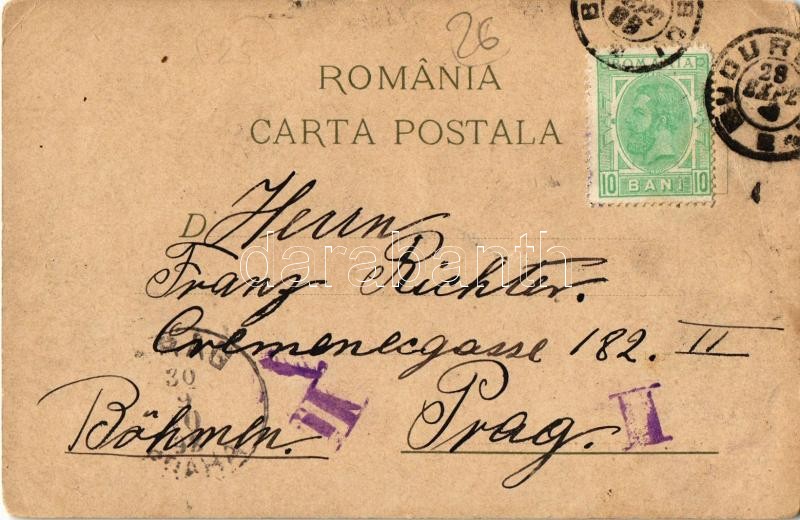 26
ROMÂNIA
CARTA POSTALA
ROMANIA
10 BANI 10
28
D
Herrn
Franz Richter.
Cremenecgasse 182. II
Böhmen. Prag. II
30
9
darabanth